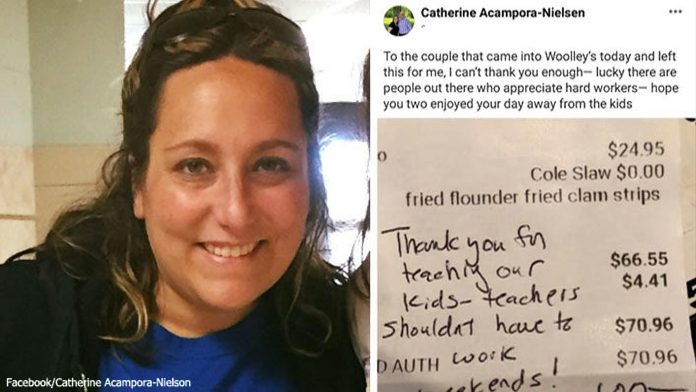 Catherine Acampora-Nielsen
To the couple that came into Woolley's today and left
this for me, I can't thank you enough— lucky there are
people out there who appreciate hard workers— hope
you two enjoyed your day away from the kids
$24.95
Cole Slaw $0.00
fried flounder fried clam strips
Thank you for
teachig our
kids- teachers
shouldnt have to
work
$66.55
$4.41
$70.96
D AUTH
$70.96
Facebook/Catherine Acampora-Nielson